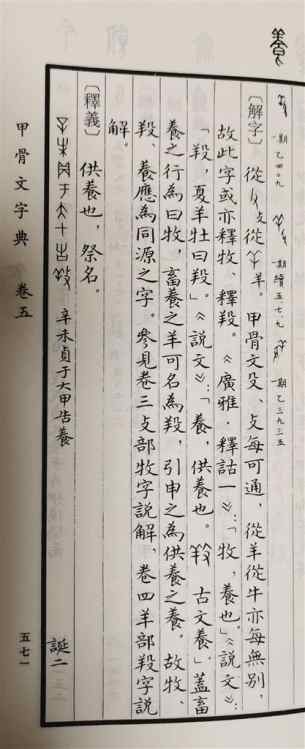 養
一期 乙四〇九 一期 續五·七·九 一期 乙三九三五
〔解字〕從攴從羊。甲骨文殳、攴每可通,從羊從牛亦每無別,
故此字或亦釋牧、釋羖。《廣雅·釋詁一》:「牧,養也。」《說文》:
「羖,夏羊牡曰羖。」《說文》:「養,供養也。䍩 古文養。」蓋畜
養之行為曰牧,畜養之羊可名為羖,引申之為供養之養。故牧、
羖、養應為同源之字。參見卷三攴部牧字說解,卷四羊部羖字說
解。
〔釋義〕供養也,祭名。
辛未貞于大甲告養 誕二
甲骨文字典 卷五
五七一